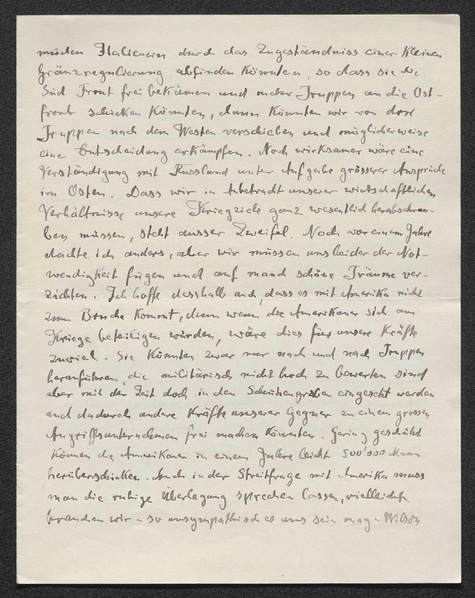 müden Italienern durch das Zugeständniss einer kleinen
Gränzregulierung abfinden könnten, so dass sie die
Süd Front frei bekämen und mehr Truppen an die Ost-
front schicken könnten, dann könnten wir von dort
Truppen nach dem Westen verschieben und möglicherweise
eine Entscheidung erkämpfen. Noch wirksamer wäre eine
Verständigung mit Russland unter Aufgabe grösserer Ansprüche
im Osten. Dass wir in Anbetracht unserer wirtschaftlichen
Verhältnisse unsere Kriegsziele ganz wesentlich herabschrau-
ben müssen, steht ausser Zweifel. Noch vor einem Jahre
dachte ich anders, aber wir müssen uns leider der Not-
wendigkeit fügen und auf manch schöne Träume ver-
zichten. Ich hoffe desshalb auch, dass es mit Amerika nicht
zum Bruche kommt, denn wenn die Amerikaner sich am
Kriege beteiligen würden, wäre dies für unsere Kräfte
zuviel. Sie könnten zwar nur nach und nach Truppen
heranführen, die militärisch nicht hoch zu bewerten sind
aber mit der Zeit doch in den Schützengräben eingesetzt werden
und dadurch andere Kräfte unserer Gegner zu einem grossen
Angriffsunternehmen frei machen könnten. Gering geschätzt
können die Amerikaner in einem Jahre leicht 500'000 Mann
herüberschicken. Auch in der Streitfrage mit Amerika muss
man die ruhige Überlegung sprechen lassen, vielleicht
brauchen wir - so unsympathisch es uns sein mag - Wilson